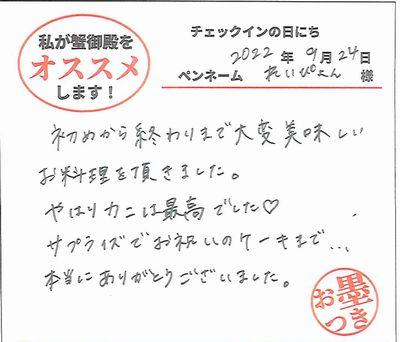 私が蟹御殿を
オススメ
します！
チェックインの日にち
2022年9月24日
ペンネーム れいぴょん 様
初めから終わりまで大変美味しい
お料理を頂きました。
やはりカニは最高でした♡
サプライズでお祝いのケーキまで…
本当にありがとうございました。
お墨つき